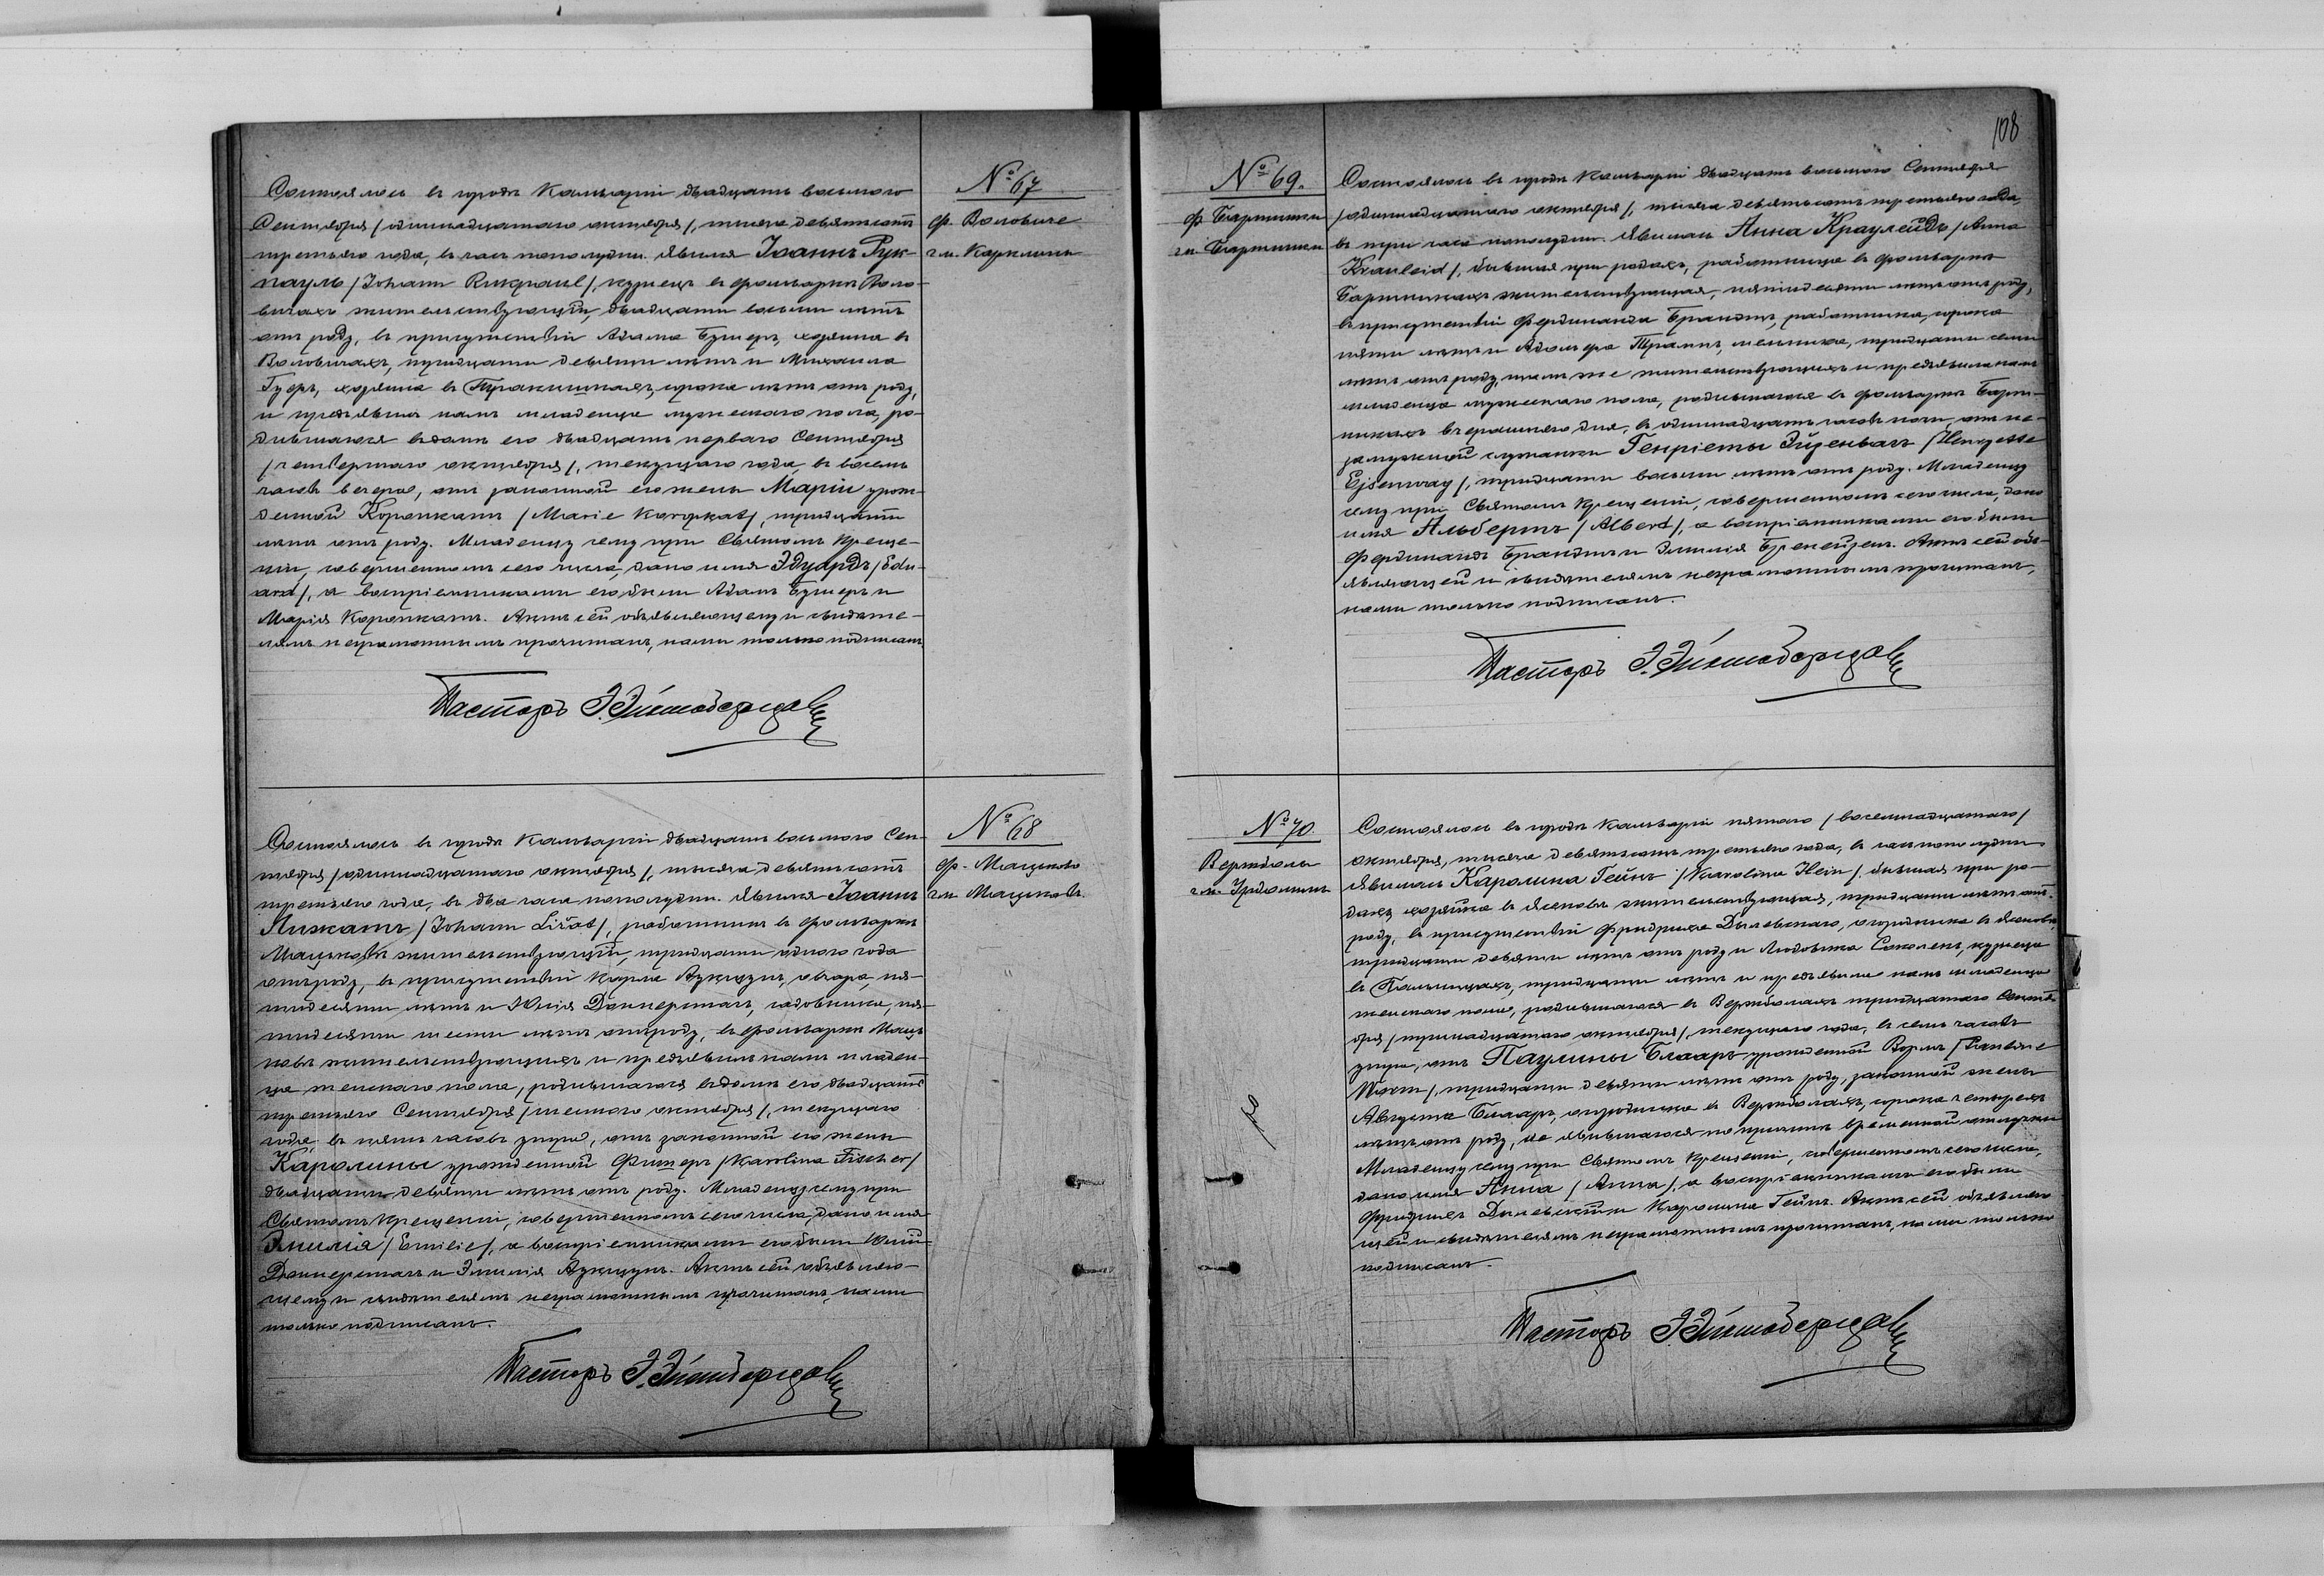 № 67
ф. Воловиче
гм. Карклины
Состоялось въ городѣ Кальваріи двадцать восьмого
Сентября /одиннадцатаго октября/, тысяча девятьсотъ
третьяго года, въ часъ пополудни. Явился Іоаннъ Рук-
пауль /Johann Rukpaul/, кузнецъ въ фольваркѣ Воло-
вичахъ жительствующій, двадцати восьми лѣтъ
отъ роду, въ присутствіи Адама хозяина въ
Воловичахъ, тридцати девяти лѣтъ и Михаила
хозяина въ сорока лѣтъ отъ роду,
и предъявилъ намъ младенца мужескаго пола, ро-
дившагося въ домѣ его двадцать перваго Сентября
/четвертаго октября/, текущаго года, въ восемь
часовъ вечера, отъ законной его жены Маріи урож-
денной Коропкатъ /Marie Koropkat/, тридцати
лѣтъ отъ роду. Младенцу сему при Святомъ Креще-
ніи, совершенномъ сего числа, дано имя Эдуардъ /Edu-
ard/, а воспріемниками его были Адамъ и
Марія Коропкатъ. Актъ сей объявляющему и свидѣте-
лямъ неграмотнымъ прочитанъ, нами только подписанъ.
Пасторъ
№ 68
ф. Мацково
гм. Мацковъ.
Состоялось въ городѣ Кальваріи двадцать восьмого Сен-
тября /одиннадцатаго октября/, тысяча девятьсотъ
третьяго года, въ два часа пополудни. Явился Іоаннъ
Лижатъ /Johann Ližat/, работникъ въ фольваркѣ
Мацковѣ жительствующій, тридцати одного года
отъ роду, въ присутствіи Карла овчара, пя-
тидесяти лѣтъ и Юлія садовника, пя-
тидесяти шести лѣтъ отъ роду, въ фольваркѣ Мац-
ковѣ жительствующихъ и предъявилъ намъ младен-
ца женскаго пола, родившагося въ домѣ его двадцать
третьяго Сентября /шестого октября/, текущаго
года въ пять часовъ утра, отъ законной его жены
Каролины урожденной Фишеръ /Karolina Fischer/
двадцати девяти лѣтъ отъ роду. Младенцу сему при
Святомъ Крещеніи, совершенномъ сего числа, дано имя
Эмилія /Emilie/, а воспріемниками его были Юлій
и Эмилія Актъ сей объявляю-
щему и свидѣтелямъ неграмотнымъ прочитанъ, нами
только подписанъ.
Пасторъ
108
№ 69.
ф. Бартники
гм. Бартники
Состоялось въ городѣ Кальваріи двадцать восьмого Сентября
/одиннадцатаго октября/, тысяча девятьсотъ третьяго года,
въ три часа пополудни. Явилась Анна Краулейдъ /Anna
Krauleid/, бывшая при родахъ, работница въ фольваркѣ
Бартникахъ жительствующая, пятидесяти лѣтъ отъ роду,
въ присутствіи Фердинанда Брандтъ, работника, сорока
пяти лѣтъ и Адольфа мельника, тридцати семи
лѣтъ отъ роду, тамъ же жительствующихъ и предъявила намъ
младенца мужескаго пола, родившагося въ фольваркѣ Барт-
никахъ вчерашняго дня, въ одиннадцать часовъ ночи, отъ не-
замужней служанки Генріеты Эйзенвагъ /Henryette
Ejsenwag/, тридцати восьми лѣтъ отъ роду. Младенцу
сему при Святомъ Крещеніи, совершенномъ сего числа, дано
имя Альбертъ /Albert/, а воспріемниками его были
Фердинандъ Брандтъ и Эмилія Актъ сей объ-
являющей и свидѣтелямъ неграмотнымъ прочитанъ,
нами только подписанъ.
Пасторъ
№ 70
Вержболы
гм.
Состоялось въ городѣ Кальваріи пятаго /восемнадцатаго/
октября, тысяча девятьсотъ третьяго года, въ часъ пополудни
Явилась Каролина Гейнъ /Karolina Hein/, бывшая при ро-
дахъ хозяйка въ Ясеновѣ жительствующая, тридцати лѣтъ отъ
роду, въ присутствіи Фридриха Дилевскаго, огородника въ Ясеновѣ,
тридцати девяти лѣтъ отъ роду и Людовика кузнеца
въ тридцати лѣтъ и предъявила намъ младенца
женскаго пола, родившагося въ Вержболахъ тридцатаго Сентя-
бря /тринадцатаго октября/, текущаго года, въ семь часовъ
утра, отъ Паулины Блааръ урожденной Вормъ /Pauline
Worm/, тридцати девяти лѣтъ отъ роду, законной жены
Августа Блааръ, огородника въ Вержболахъ, сорока четырехъ
лѣтъ отъ роду, не явившагося по причинѣ временной отлучки
Младенцу сему при Святомъ Крещеніи, совершенномъ сего числа,
дано имя Анна /Anna/, а воспріемниками его были
Фридрихъ Дилевскій и Каролина Гейнъ. Актъ сей объявляю-
щей и свидѣтелямъ неграмотнымъ прочитанъ, нами только
подписанъ.
Пасторъ